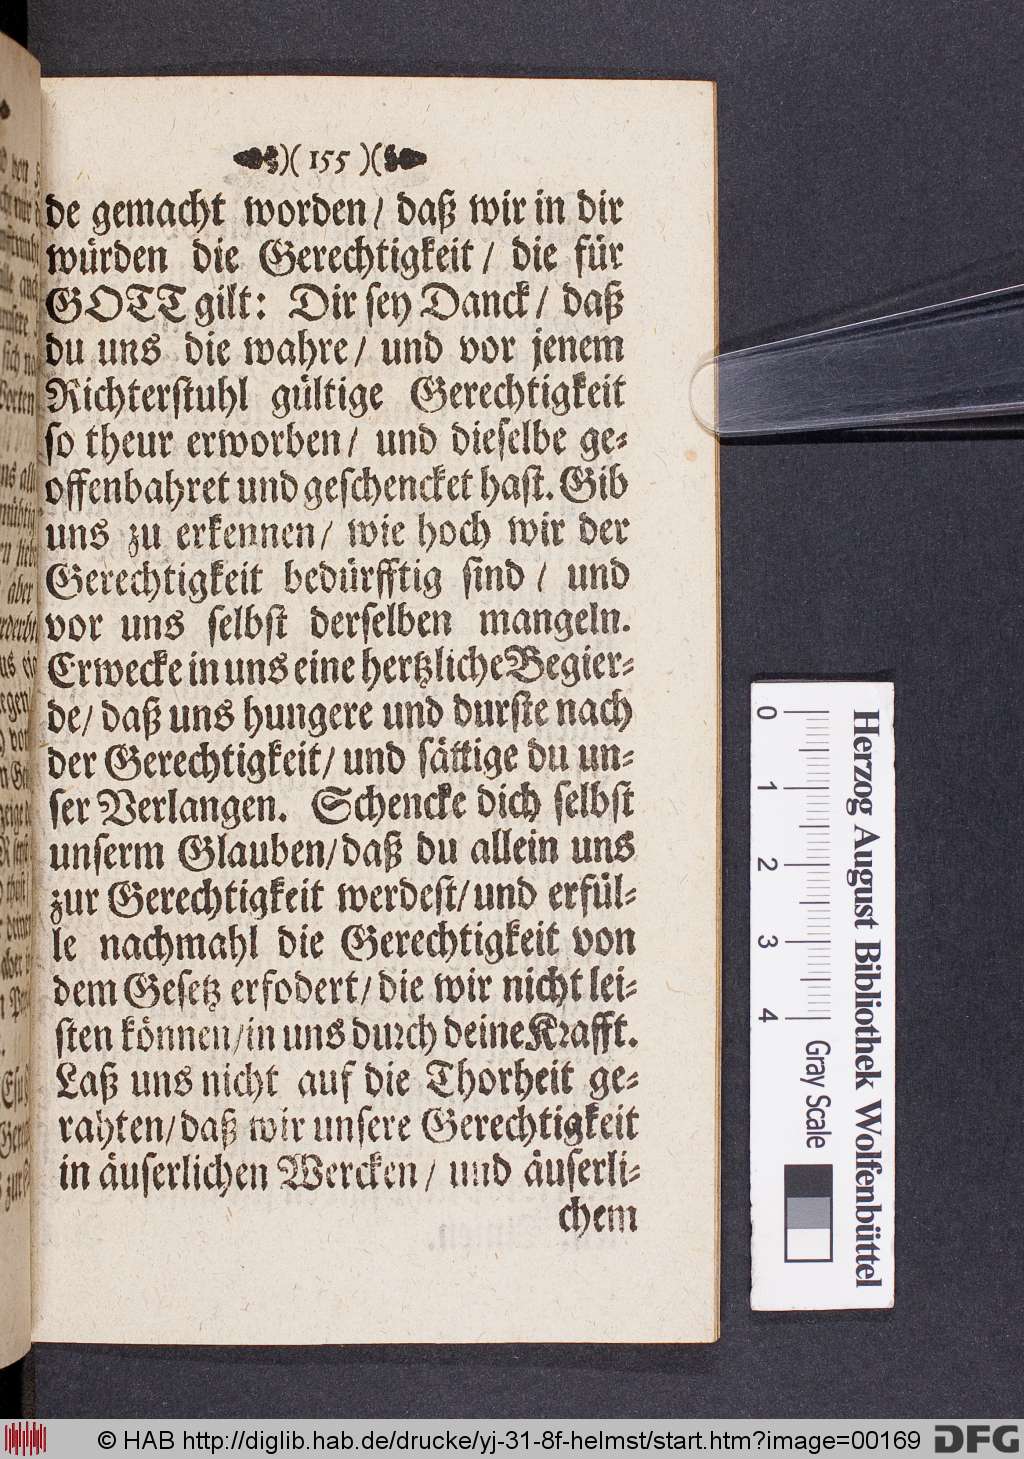 )( 155 )(
de gemacht worden / daß wir in dir
würden die Gerechtigkeit / die für
GOTT gilt: Dir sey Danck / daß
du uns die wahre / und vor jenem
Richterstuhl gültige Gerechtigkeit
so theur erworben / und dieselbe ge-
offenbahret und geschencket hast. Gib
uns zu erkennen / wie hoch wir der
Gerechtigkeit bedürfftig sind / und
vor uns selbst derselben mangeln.
Erwecke in uns eine hertzliche Begier-
de / daß uns hungere und durste nach
der Gerechtigkeit / und sättige du un-
ser Verlangen. Schencke dich selbst
unserm Glauben / daß du allein uns
zur Gerechtigkeit werdest / und erfül-
le nachmahl die Gerechtigkeit von
dem Gesetz erfodert / die wir nicht lei-
sten können / in uns durch deine Krafft.
Laß uns nicht auf die Thorheit ge-
rahten / daß wir unsere Gerechtigkeit
in äuserlichen Wercken / und äuserli-
chem
Herzog August Bibliothek Wolfenbüttel
0 1 2 3 4 Gray Scale
© HAB http://diglib.hab.de/drucke/yj-31-8f-helmst/start.htm?image=00169
DFG